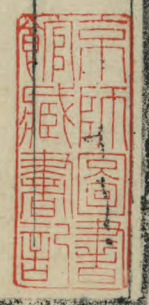 京師圖書
館藏書記